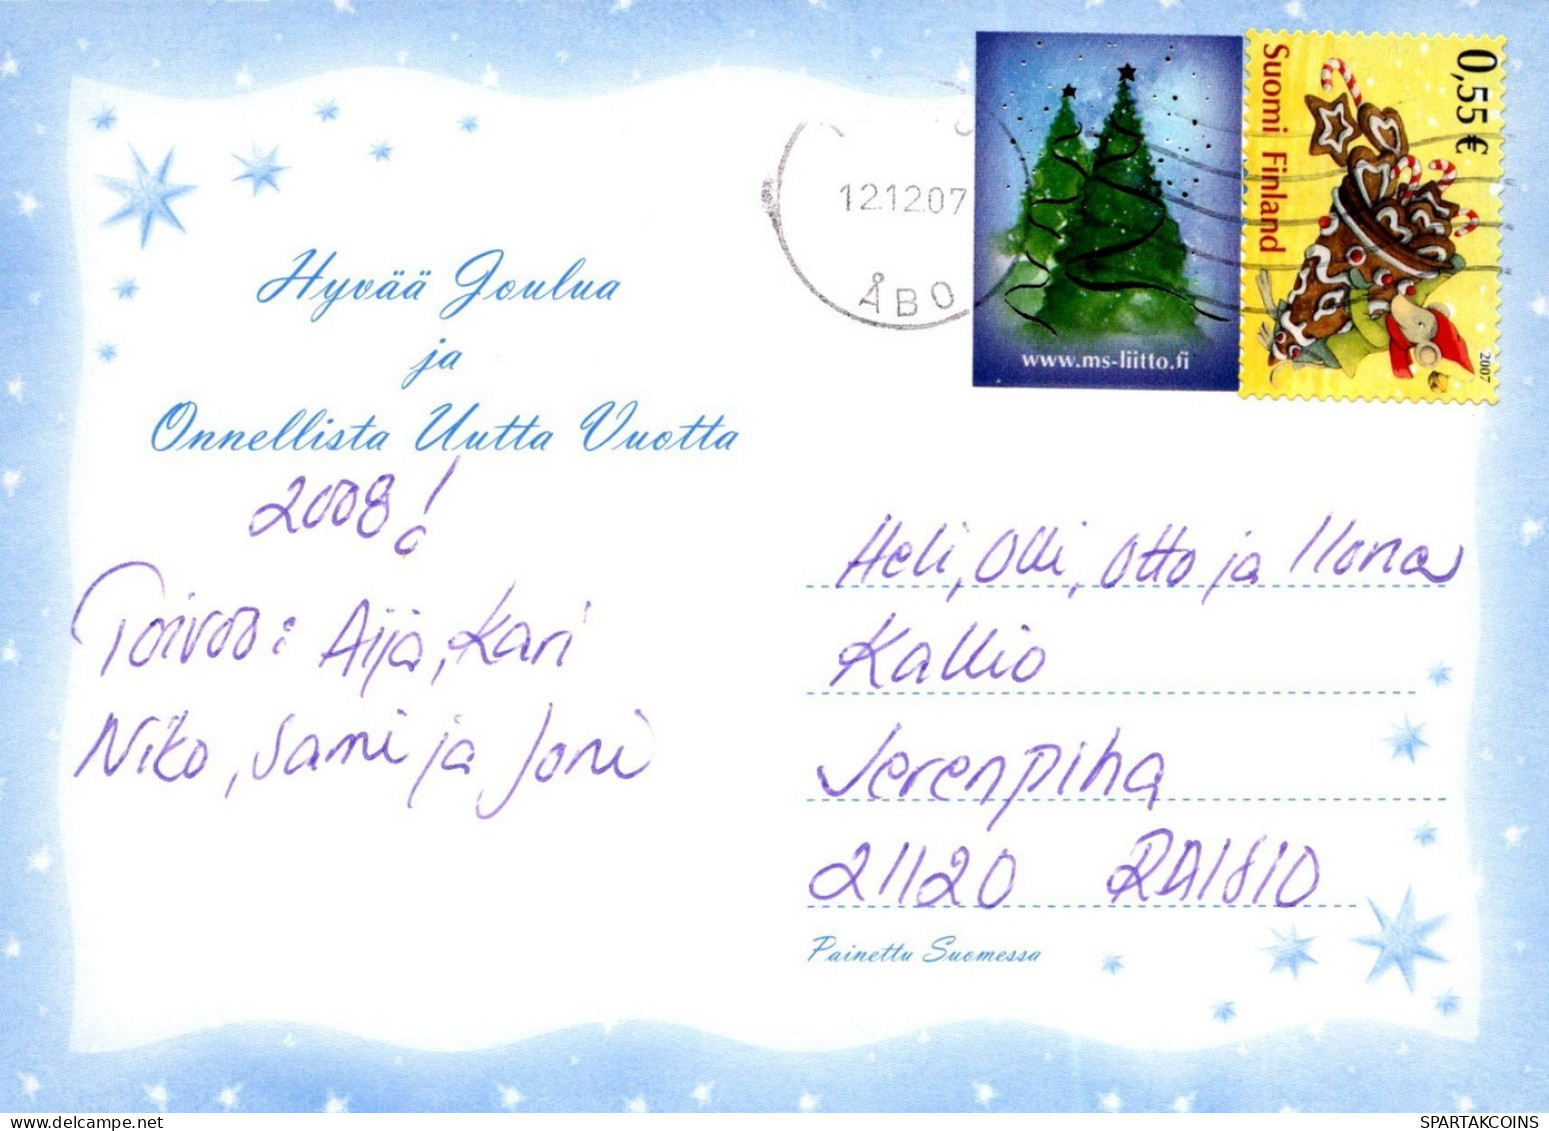 Hyvää Joulua
ja
Onnellista Uutta Vuotta
2008!
Toivoo: Aija, Kari
Niko, Sami ja Joni
12.12.07
ÅBO
www.ms-liitto.fi
0,55 €
Suomi Finland
2007
Heli, Olli, Otto ja Ilona
Kallio
Jerenpiha
21120 RAISIO
Painettu Suomessa
www.delcampe.net
SPARTAKCOINS